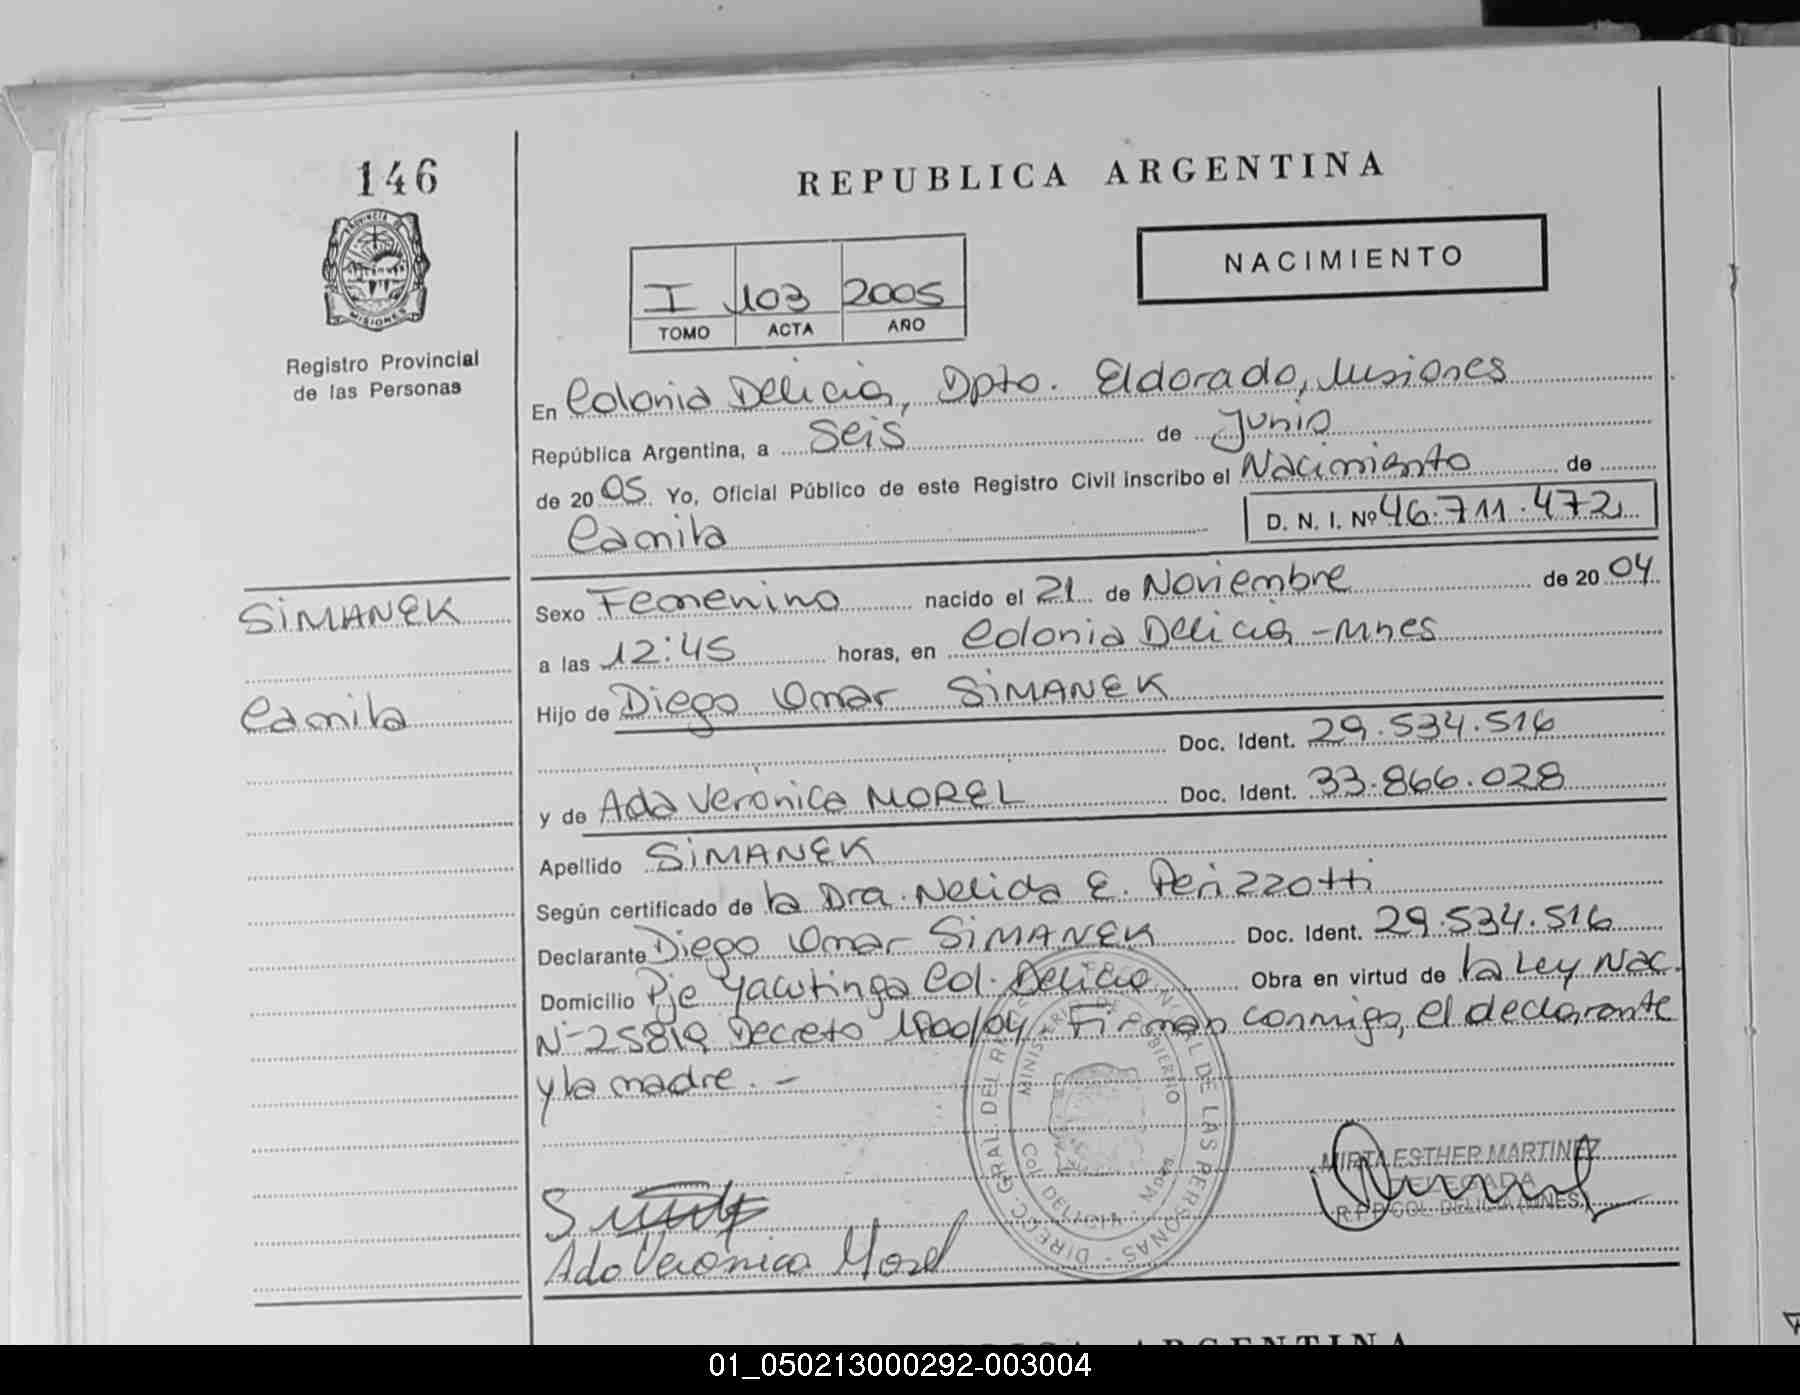 146
PROVINCIA DE
MISIONES
Registro Provincial
de las Personas
SIMANEK
Camila
REPUBLICA ARGENTINA
NACIMIENTO
I 103 2005
TOMO ACTA AÑO
En Colonia Delicia, Dpto. Eldorado, Misiones
República Argentina, a Seis de Junio
de 2005. Yo, Oficial Público de este Registro Civil inscribo el Nacimiento de
Camila D. N. I. Nº 46.711.472
Sexo Femenino nacido el 21 de Noviembre de 2004
a las 12:45 horas, en Colonia Delicia - Mnes
Hijo de Diego Omar SIMANEK
Doc. Ident. 29.534.516
y de Ada Verónica MOREL Doc. Ident. 33.866.028
Apellido SIMANEK
Según certificado de la Dra. Nelida E. Perizzotti
Declarante Diego Omar SIMANEK Doc. Ident. 29.534.516
Domicilio Pje Yacutinga Col. Delicia Obra en virtud de la Ley Nac.
Nº 25819 Decreto 1900/04 Firman conmigo, el declarante
y la madre. -
DIRECC. GRAL. DEL REG. PROVINCIAL DE LAS PERSONAS
MINISTERIO DE GOBIERNO
Col. DELICIA - Mnes.
MIRTA ESTHER MARTINEZ
DELEGADA
R.P.P. COL. DELICIA (MNES)
Ada Verónica Morel
REPUBLICA ARGENTINA
01_050213000292-003004